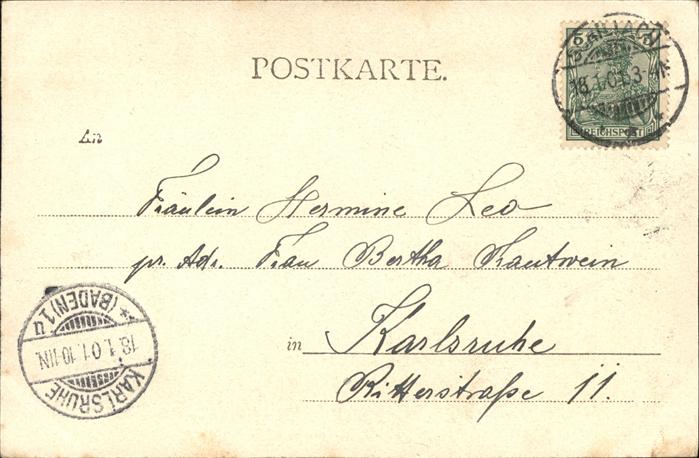 POSTKARTE.
5 5
REICHSPOST
18.1.01.3-4N.
An
Fräulein Hermine Leo
pr. Adr. Frau Bertha Kautwein
in Karlsruhe
Ritterstraße 11.
KARLSRUHE
(BADEN) 1.
18.1.01.10-11N.